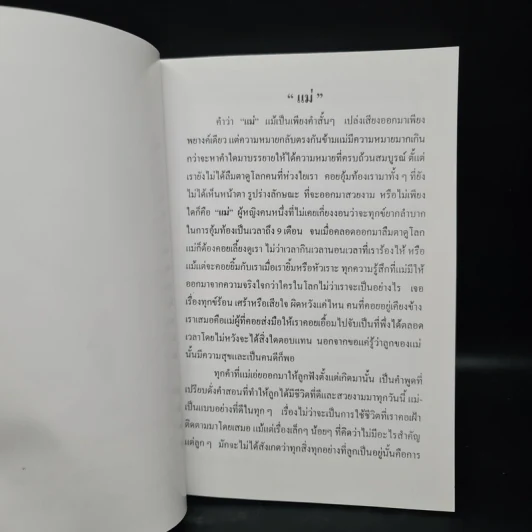 “ แม่ ”
คำว่า “แม่” แม้เป็นเพียงคำสั้นๆ เปล่งเสียงออกมาเพียง
พยางค์เดียว แต่ความหมายกลับตรงกันข้ามแม่มีความหมายมากเกิน
กว่าจะหาคำใดมาบรรยายให้ได้ความหมายที่ครบถ้วนสมบูรณ์ ตั้งแต่
เรายังไม่ได้ลืมตาดูโลกคนที่ห่วงใยเรา คอยอุ้มท้องเรามาทั้งๆ ที่ยัง
ไม่ได้เห็นหน้าตา รูปร่างลักษณะ ที่จะออกมาสวยงาม หรือไม่เพียง
ใดก็คือ “แม่” ผู้หญิงคนหนึ่งที่ไม่เคยเกี่ยงงอนว่าจะทุกข์ยากลำบาก
ในการอุ้มท้องเป็นเวลาถึง 9 เดือน จนเมื่อคลอดออกมาลืมตาดูโลก
แม่ก็ต้องคอยเลี้ยงดูเรา ไม่ว่าเวลากินเวลานอนเวลาที่เราร้องไห้ หรือ
แม้แต่จะคอยยิ้มกับเราเมื่อเรายิ้มหรือหัวเราะ ทุกความรู้สึกที่แม่มีให้
ออกมาจากความจริงใจกว่าใครในโลกไม่ว่าเราจะเป็นอย่างไร เจอ
เรื่องทุกข์ร้อน เศร้าหรือเสียใจ ผิดหวังแค่ไหน คนที่คอยอยู่เคียงข้าง
เราเสมอคือแม่ผู้ที่คอยส่งมือให้เราคอยเอื้อมไปจับเป็นที่พึ่งได้ตลอด
เวลาโดยไม่หวังจะได้สิ่งใดตอบแทน นอกจากขอแค่รู้ว่าลูกของแม่
นั้นมีความสุขและเป็นคนดีก็พอ
ทุกคำที่แม่เอ่ยออกมาให้ลูกฟังตั้งแต่เกิดมานั้น เป็นคำพูดที่
เปรียบดั่งคำสอนที่ทำให้ลูกได้มีชีวิตที่ดีและสวยงามมาทุกวันนี้ แม่-
เป็นแบบอย่างที่ดีในทุกๆ เรื่องไม่ว่าจะเป็นการใช้ชีวิตที่เราคอยเฝ้า
ติดตามมาโดยเสมอ แม้แต่เรื่องเล็กๆ น้อยๆ ที่คิดว่าไม่มีอะไรสำคัญ
แต่ลูกๆ มักจะไม่ได้สังเกตว่าทุกสิ่งทุกอย่างที่ลูกเป็นอยู่นั้นคือการ